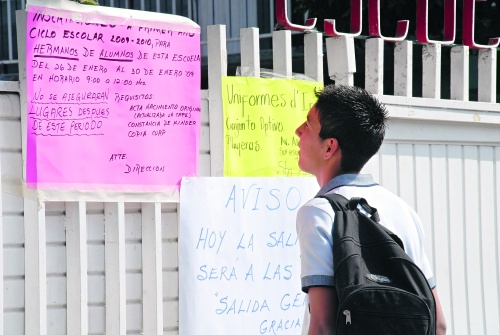 INSCRIPCIONES A PRIMER AÑO
CICLO ESCOLAR 2009-2010, PARA
HERMANOS DE ALUMNOS DE ESTA ESCUELA
DEL 26 DE ENERO AL 30 DE ENERO '09
EN HORARIO 9:00 a 12:00 Hrs.
NO SE ASEGURARAN
LUGARES DESPUES
DE ESTE PERIODO
REQUISITOS:
ACTA NACIMIENTO ORIGINAL
CONSTANCIA DE KINDER
COPIA CURP
ATTE.
DIRECCION
Uniformes d'I
Conjunto Dptivo
Playeras
AVISO
HOY LA SALI
SERA A LAS
"SALIDA GEN
GRACIA